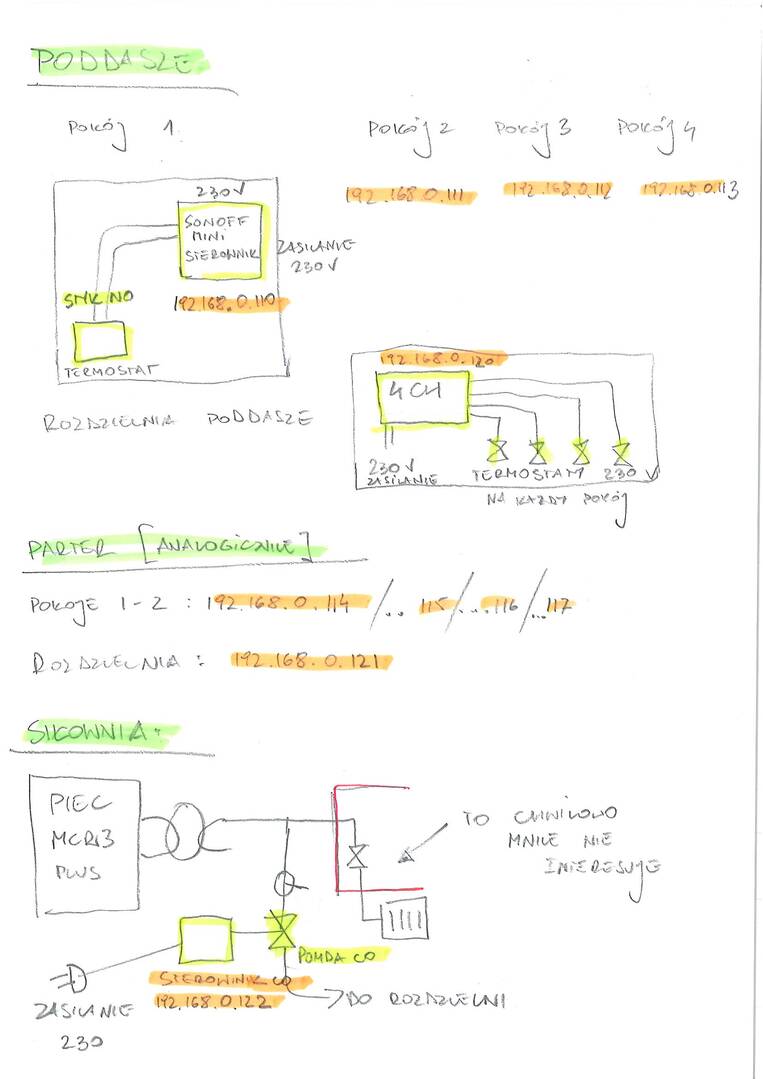 PODDASZE
POKÓJ 1
POKÓJ 2
POKÓJ 3
POKÓJ 4
192.168.0.111
192.168.0.112
192.168.0.113
230V
SONOFF
MINI
STEROWNIK
ZASILANIE
230V
STYK NO
192.168.0.110
TERMOSTAT
ROZDZIELNIA PODDASZE
192.168.0.120
4CH
230V
ZASILANIE
TERMOSTATY 230 V
NA KAŻDY POKÓJ
PARTER [ANALOGICZNIE]
POKOJE 1-2 : 192.168.0.114 /... 115 /...116 /...117
ROZDZIELNIA : 192.168.0.121
SIŁOWNIA:
PIEC
MCR13
PLUS
TO CHWILOWO
MNIE NIE
INTERESUJE
POMPA CO
STEROWNIK CO
192.168.0.122
DO ROZDZIELNI
ZASILANIE
230